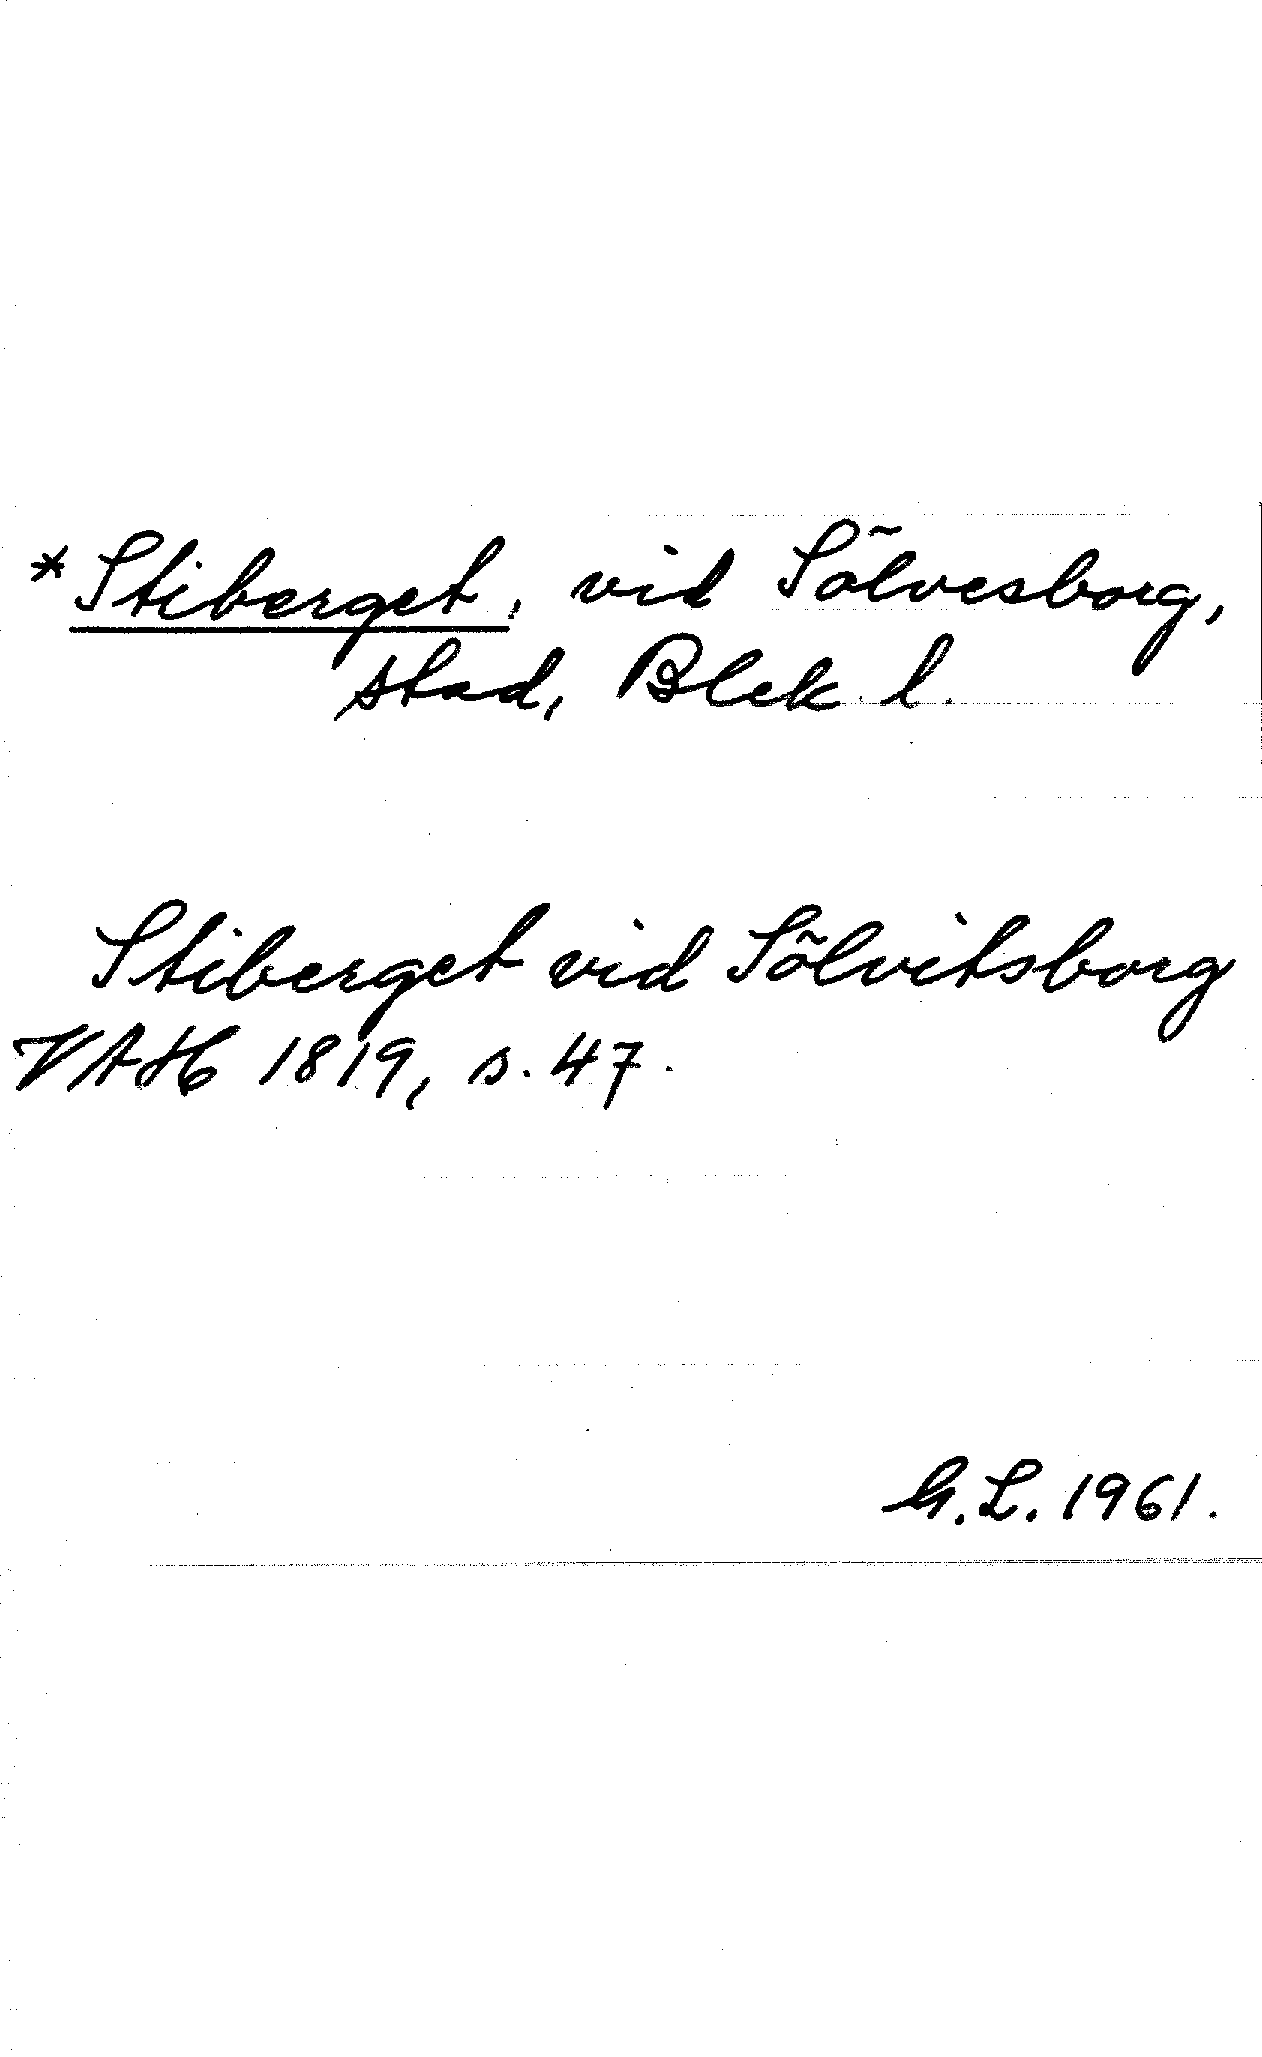 *Stiberget, vid Sölvesborg,
stad, Blek. l.
Stiberget vid Sölvitsborg
VAH 1819, s. 47.
G. L. 1961.